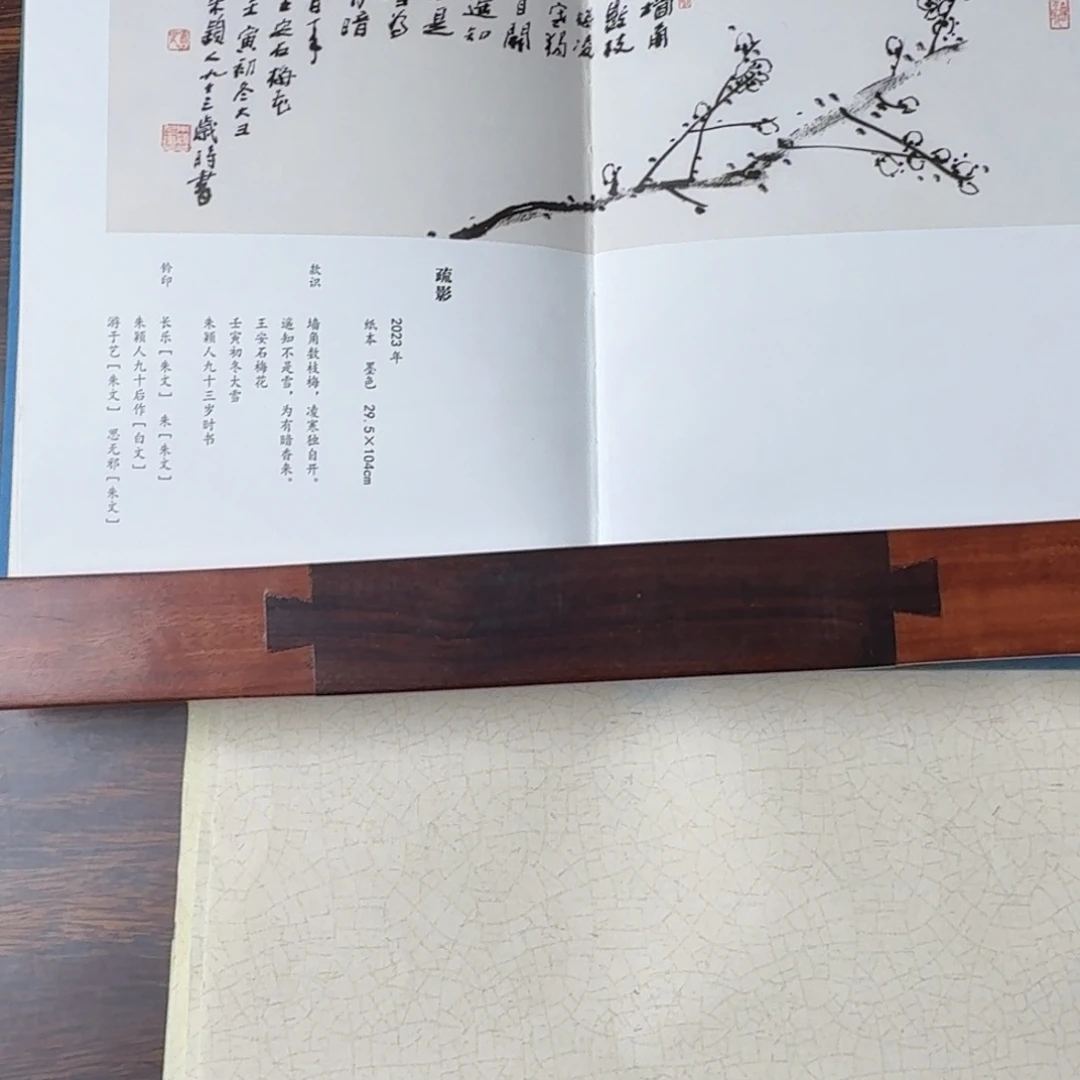 牆角
數枝
梅凌
寒獨
自開
遥知
是
为
暗
王安石梅花
壬寅初冬大雪
朱颖人九十三歲時書
疏影
2023 年
纸本 墨色 29.5×104cm
款识
墙角数枝梅，凌寒独自开。
遥知不是雪，为有暗香来。
王安石梅花
壬寅初冬大雪
朱颖人九十三岁时书
钤印
长乐［朱文］ 朱［朱文］
朱颖人九十后作［白文］
游于艺［朱文］ 思无邪［朱文］